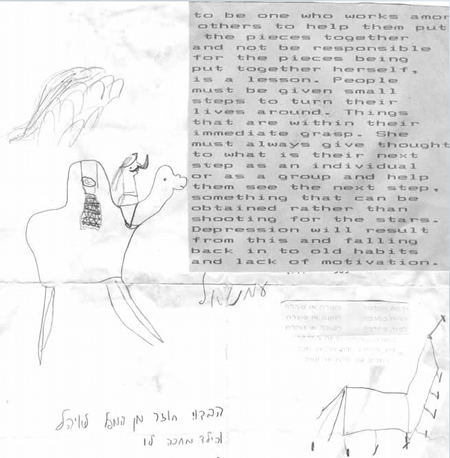 to be one who works amon
others to help them put
the pieces together
and not be responsible
for the pieces being
put together herself,
is a lesson. People
must be given small
steps to turn their
lives around. Things
that are within their
immediate grasp. She
must always give thought
to what is their next
step as an individual
or as a group and help
them see the next step,
something that can be
obtained rather than
shooting for the stars.
Depression will result
from this and falling
back in to old habits
and lack of motivation.
עמנואל
הבדוי חוזר מן לאוהל
הילד מחכה לו